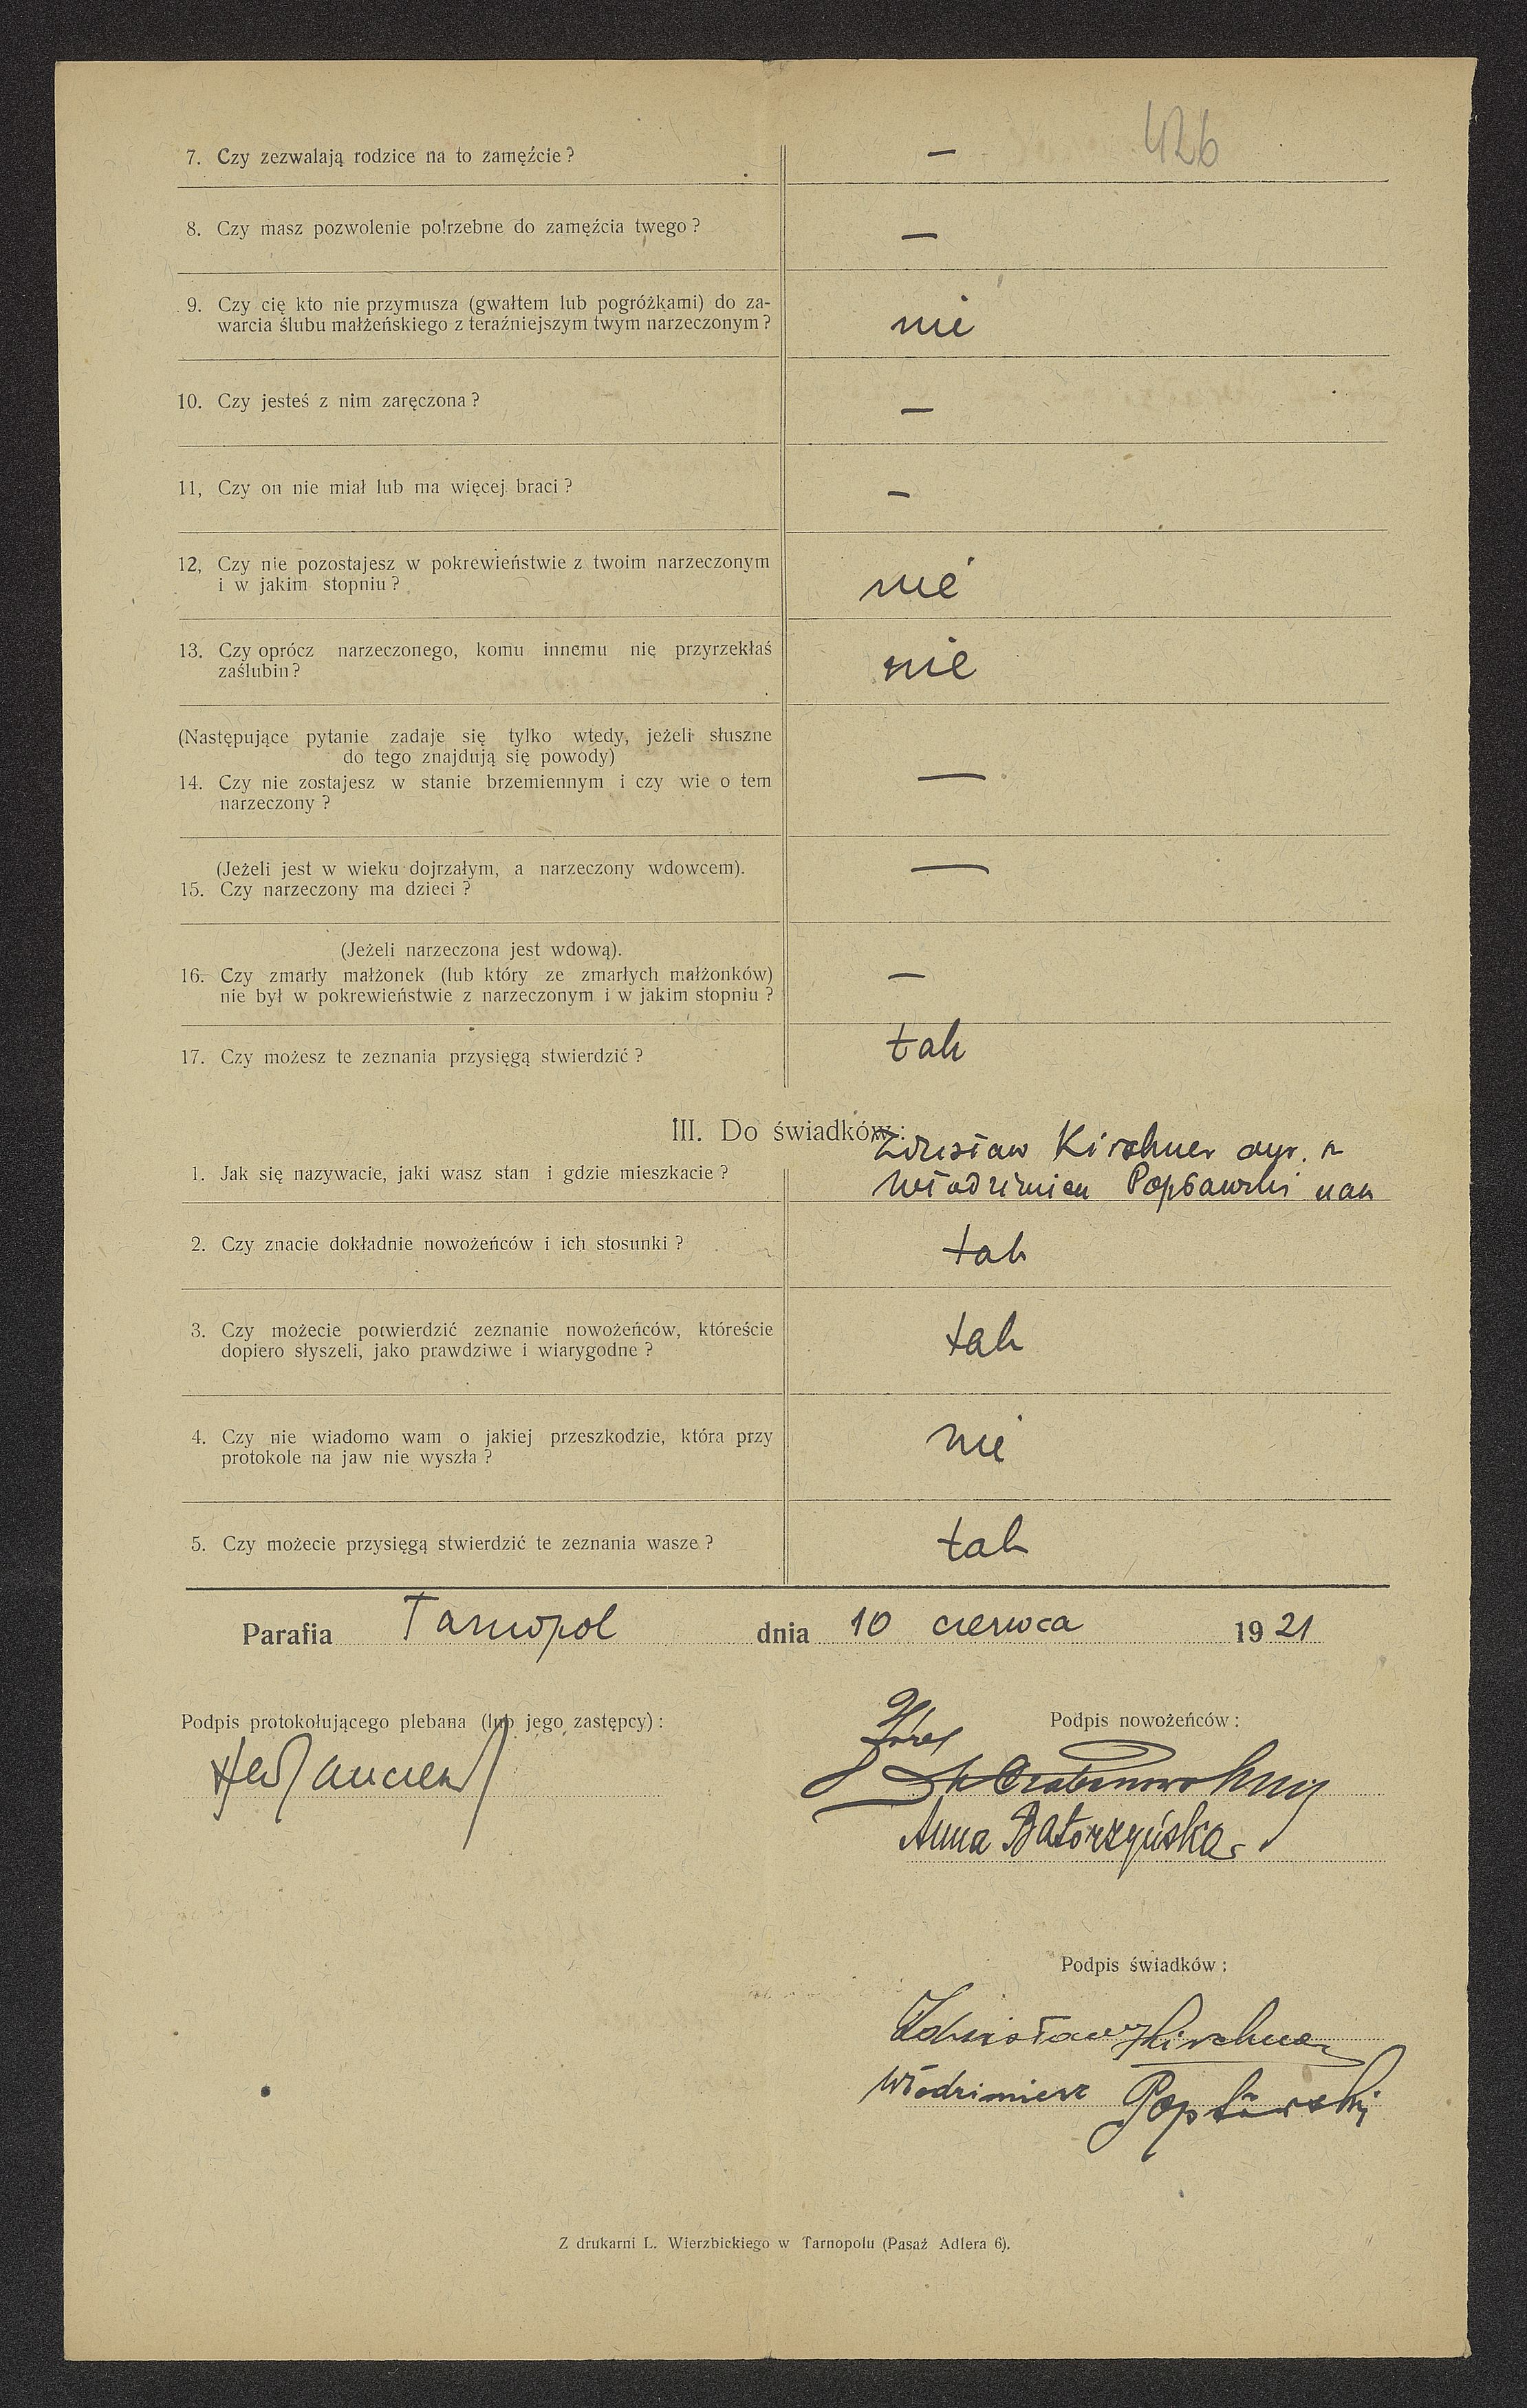 426
7. Czy zezwalają rodzice na to zamęźcie? —
8. Czy masz pozwolenie potrzebne do zamęźcia twego? —
9. Czy cię kto nie przymusza (gwałtem lub pogróżkami) do za-
warcia ślubu małżeńskiego z teraźniejszym twym narzeczonym? nie
10. Czy jesteś z nim zaręczona? —
11, Czy on nie miał lub ma więcej braci? —
12, Czy nie pozostajesz w pokrewieństwie z twoim narzeczonym
i w jakim stopniu? nie
13. Czy oprócz narzeczonego, komu innemu nie przyrzekłaś
zaślubin? nie
(Następujące pytanie zadaje się tylko wtedy, jeżeli słuszne
do tego znajdują się powody)
14. Czy nie zostajesz w stanie brzemiennym i czy wie o tem —
narzeczony?
(Jeżeli jest w wieku dojrzałym, a narzeczony wdowcem). —
15. Czy narzeczony ma dzieci?
(Jeżeli narzeczona jest wdową).
16. Czy zmarły małżonek (lub który ze zmarłych małżonków) —
nie był w pokrewieństwie z narzeczonym i w jakim stopniu?
17. Czy możesz te zeznania przysięgą stwierdzić? tak
III. Do świadków:
Zdzisław Kirchner
1. Jak się nazywacie, jaki wasz stan i gdzie mieszkacie?
Włodzimierz Popławski
2. Czy znacie dokładnie nowożeńców i ich stosunki? tak
3. Czy możecie potwierdzić zeznanie nowożeńców, któreście
dopiero słyszeli, jako prawdziwe i wiarygodne? tak
4. Czy nie wiadomo wam o jakiej przeszkodzie, która przy
protokole na jaw nie wyszła? nie
5. Czy możecie przysięgą stwierdzić te zeznania wasze? tak
Parafia Tarnopol dnia 10 czerwca 1921
Podpis protokołującego plebana (lub jego zastępcy): Podpis nowożeńców:
Józef
Anna Batorzyńska
Podpis świadków:
Zdzisław Kirchner
Włodzimierz Popławski
Z drukarni L. Wierzbickiego w Tarnopolu (Pasaż Adlera 6).